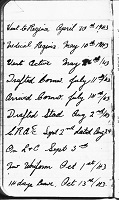 Vent to Regina April 20th 1943
Medical Regina May 10th 1943
Went Active May 5th/43
Drafted Cornw. July 11th/43
Arrived Cornw. July 14th/43
Drafted Stad Aug 2nd/43
L.R.C.E. Sept 2nd dated Aug 29
On L & C Sept 3rd
New Uniform Oct 1st/43
14 days Leave Oct 13th/43